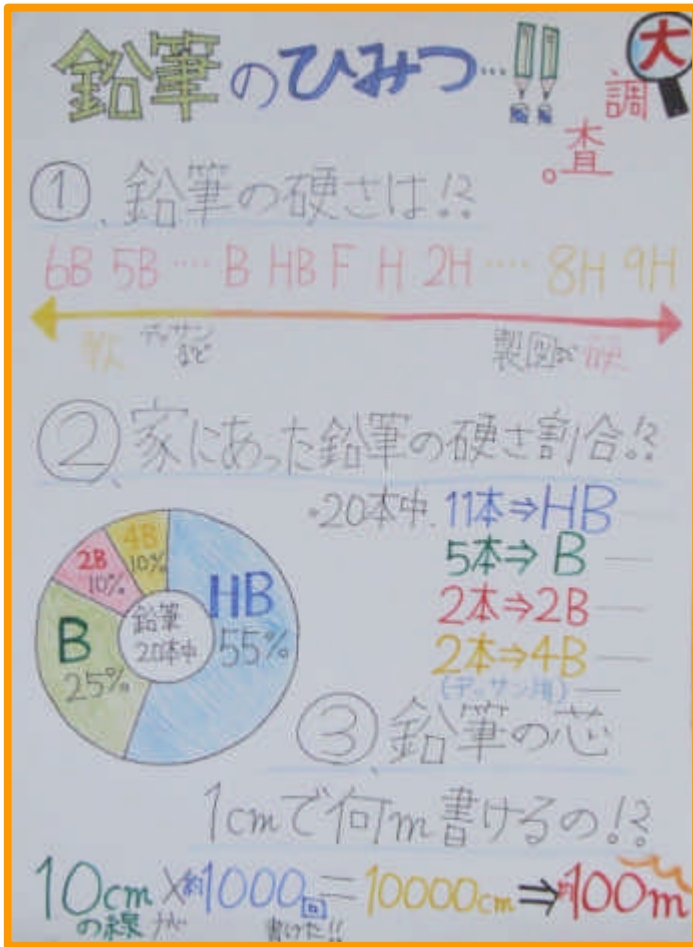 鉛筆のひみつ…!!
大
調
査。
①、鉛筆の硬さは!?
6B 5B ‥‥ B HB F H 2H ‥‥ 8H 9H
軟 デッサンなど 製図など 硬
②、家にあった鉛筆の硬さ割合!?
・20本中、11本⇒HB
5本⇒B
2本⇒2B
2本⇒4B
(デッサン用)
4B
10%
2B
10%
HB
55%
B
25%
鉛筆
20本中
③、鉛筆の芯
1cmで何m書けるの!?
10cm×約1000回=10000cm⇒約100m
の線 が 書けた!!